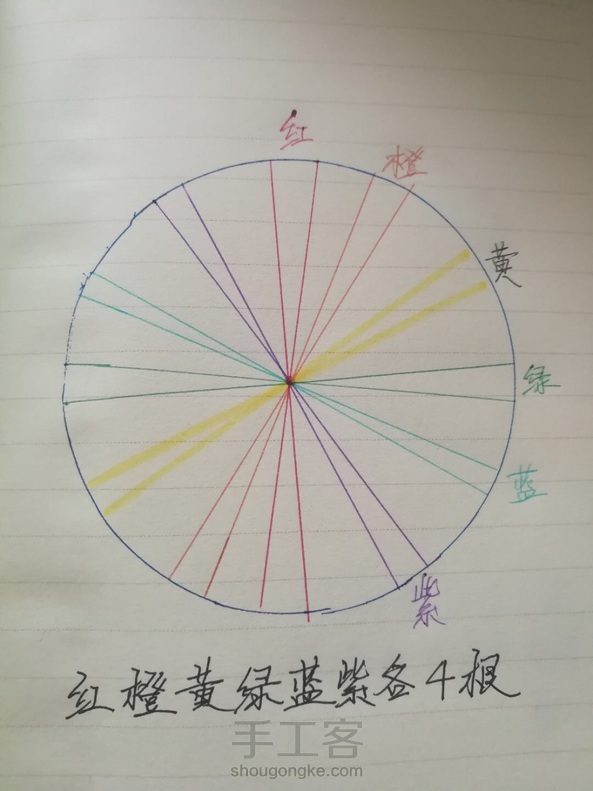 红
橙
黄
绿
蓝
紫
红橙黄绿蓝紫各4根
手工客
shougongke.com